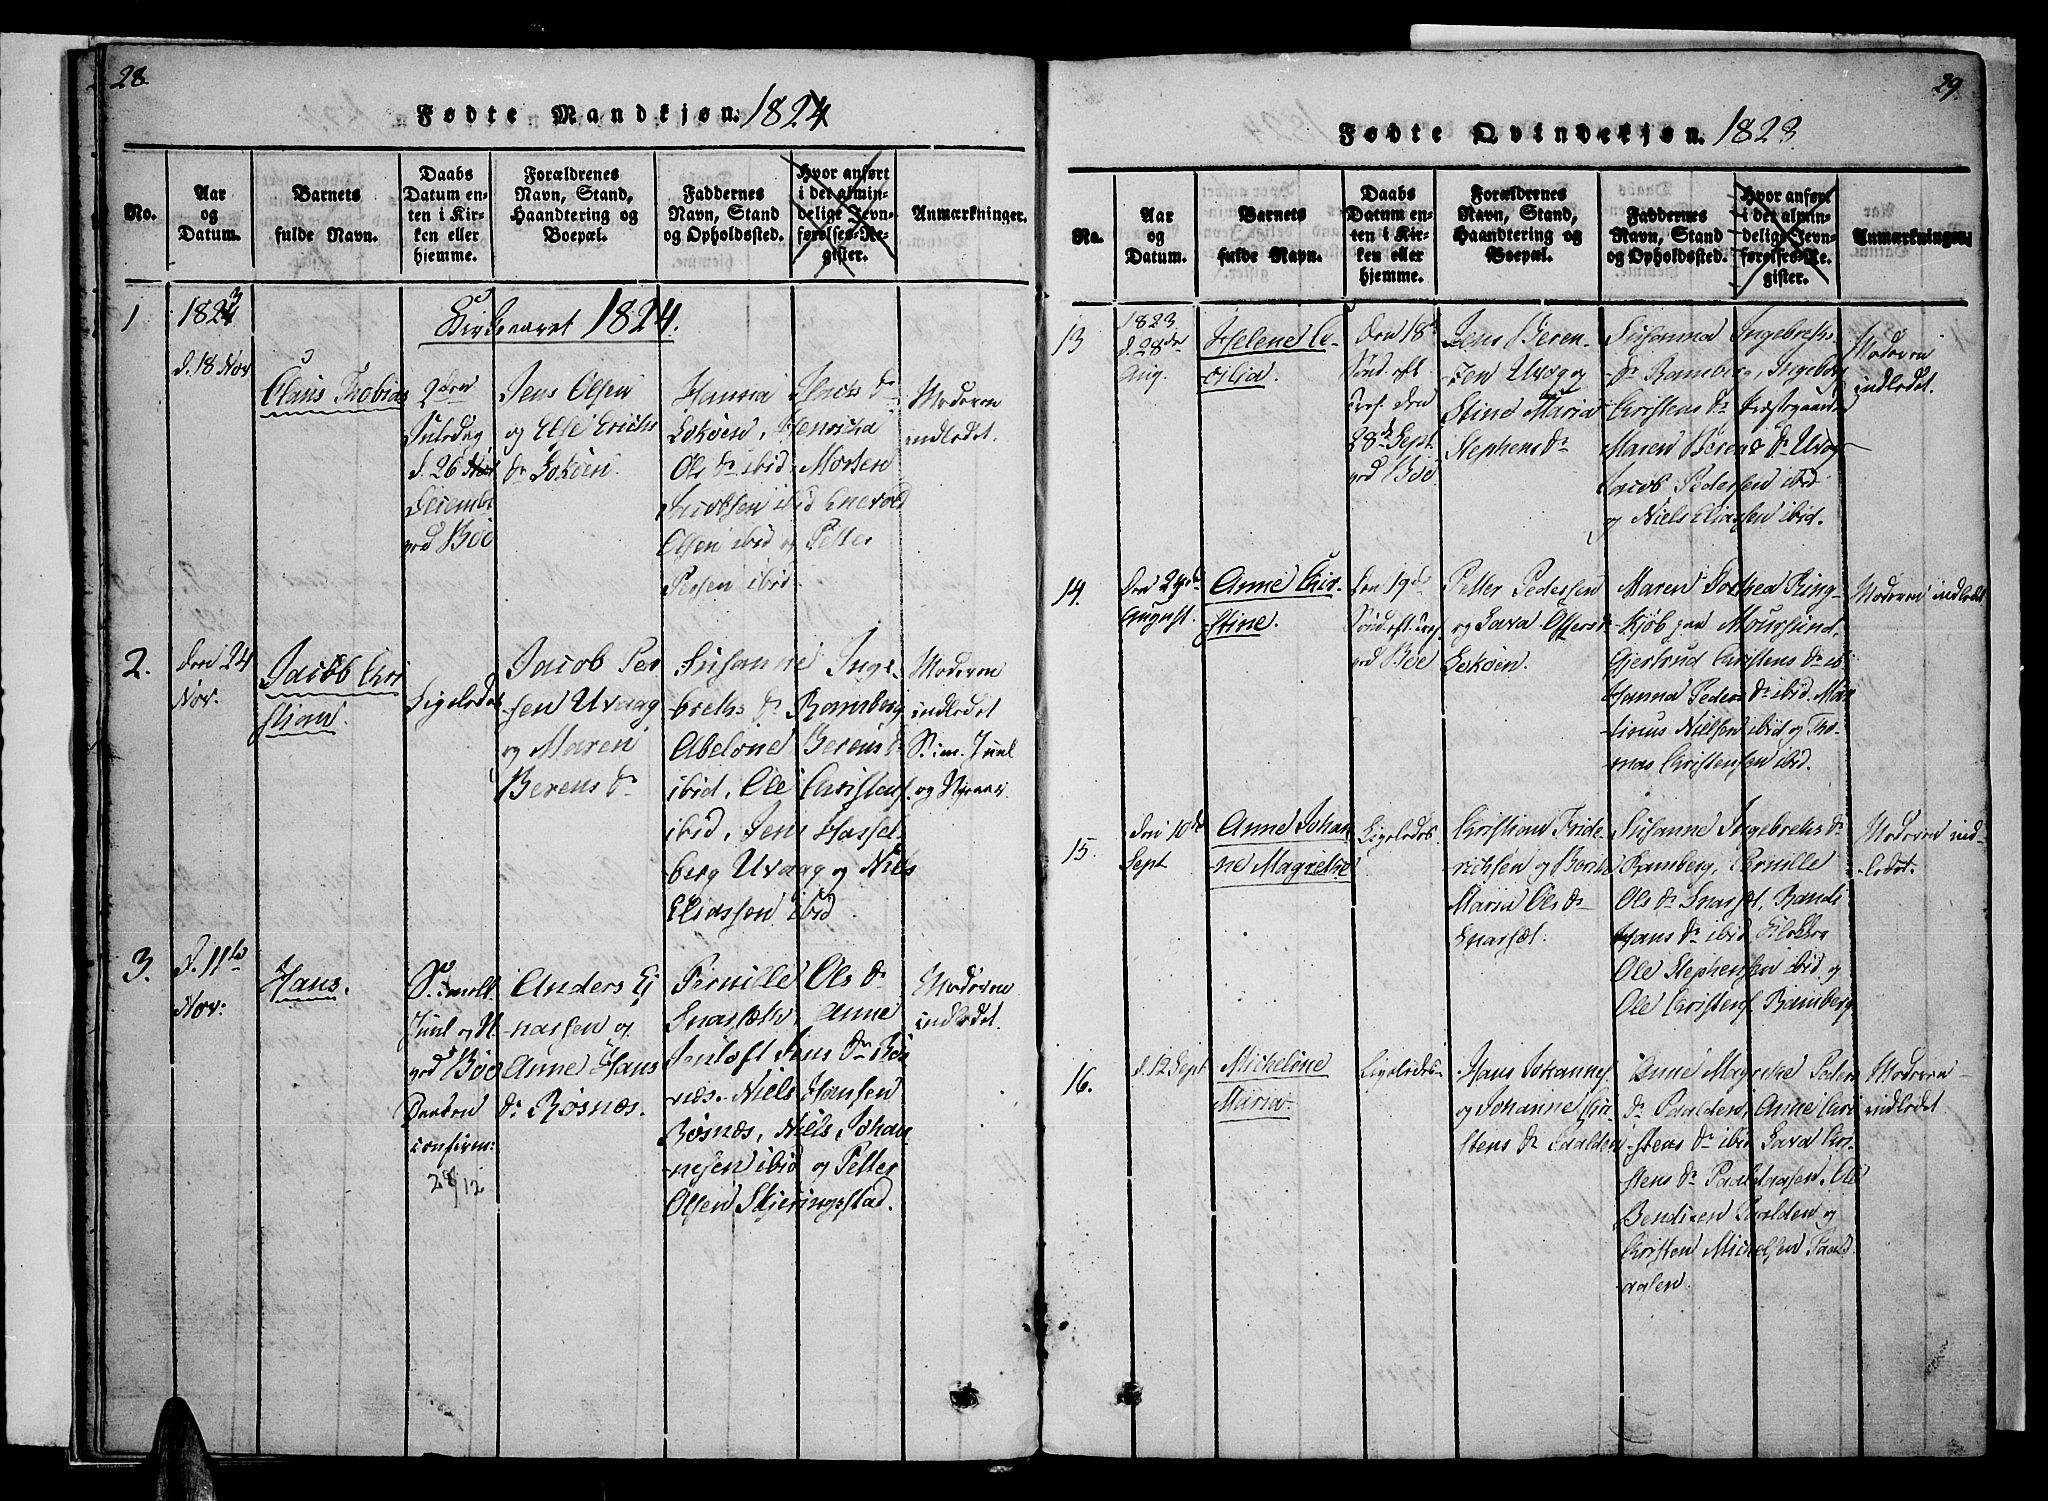 28.
Fødte Mandkjøn. 1824
No.
Aar
og
Datum.
Barnets
fulde Navn.
Daabs
Datum en-
ten i Kir-
ken eller
hjemme.
Forældrenes
Navn, Stand,
Haandtering og
Boepæl.
Faddernes
Navn, Stand
og Opholdssted.
Hvor anført
i det almin-
delige Jevn-
førelses-Re-
gister.
Anmærkninger.
Kirkeaaret 1824.
1
1823
d. 18 Nov
Claus Thobias
2den
Juledag
d. 26
Decemb.
ved Böe
Jens Olsen
og Else Erichs
Dr Sokøen.
Hanna Isachs Dr
Sokøen, Henricha
Ols Dr ibid, Morten
Jacobsen ibid Enevold
Olsen ibid og Petter
Persen ibid.
Moderen
indledet.
2.
Den 24
Nov.
Jacob Chri
stian.
Ligeledes
Jacob Per
sen Uvaag
og Maren
Berens Dr
Susanne Inge-
breths Dr Ramberg
Abelone Berens Dr
ibid, Ole Christens.
ibid, Jens Hassel-
berg Uvaag og Niels
Eliassen ibid
Moderen
indledet
S. im. Juul
og Nyeaar.
3.
d. 11te
Nov:
Hans.
S. imell.
Juul og N.
ved Böe
Daaben
confirm:
28/12
Anders Ei
narsen og
Anne Hans
Dr Røsnæs.
Pernille Ols Dr
Snarsæth, Anne
Jentoft Jens Dr Røs
næs. Niels Hansen
Røsnæs, Niels Johan
nesen ibid og Petter
Olsen Skjeringstad.
Moderen
indledet.
29.
Fødte Qvindekjøn. 1823
No.
Aar
og
Datum.
Barnets
fulde Navn.
Daabs
Datum en-
ten i Kir-
ken eller
hjemme.
Forældrenes
Navn, Stand,
Haandtering og
Boepæl.
Faddernes
Navn, Stand
og Opholdssted.
Hvor anført
i det almin-
delige Jevn-
førelses-Re-
gister.
Anmærkninger.
13
1823
d. 28de
Aug.
Helene Ce-
cilia.
Den 18de
Sönd. eft.
Tref. den
28de Sept.
ved Böe
Jens Beren-
sen Uvog og
Stine Maria
Stephens Dr
Susanna Ingebreths
Dr Ramberg, Ingeborg
Christens Dr Præstegaarden
Maren Berens Dr Uvog
Jacob Pedersen ibid
og Niels Eliassen ibid.
Moderen
indledet.
14.
Den 24de
August.
Anne Chir-
stine.
Den 19de
Sönd. eft. Tref.
ved Böe
Petter Pedersen
og Sara Offers Dr
Sokøen.
Maren Dorthea Ring-
kjöb paa Moursund,
Gjertrud Christens Dr ib
Hanna Peders Dr ibid. Mar
tinus Nielsen ibid og Tho-
mas Christensen ibid.
Moderen indledet
15.
Den 10de
Sept
Anne Johan
ne Magrethe
Ligeledes
Christian Fride-
richsen og Berith
Maria Ols Dr
Snarsæt.
Susanne Ingebreths Dr
Ramberg, Pernille
Ols Dr Snarsæt, Randi
Hans Dr ibid
Ole Stephensen ibid og
Ole Christens Ramberg
Moderen ind-
ledet.
16.
d. 12 Sept
Michelöne
Maria.
Ligeledes
Hans Johannes.
og Johanne Chri
stens Dr Paalden
Anne Magrethe Peders
Dr Paalden, Anne Chri
stens Dr ibid Sara Chri-
stens Dr Ole
Bendixen Paalden og
Christen Michelsen Paal-
dalen.
Moderen
indledet